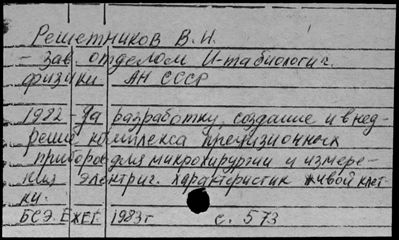 Решетников В.Н.
- Зав отделом И-та биологич.
физики АН СССР
1982 - За разработку, создание и внед-
рение комплекса прецизионных
приборов для микрохирургии и измере-
ния электрич. характеристик живой клет-
ки.
БСЭ. ЕЖЕГ. 1983г с. 573